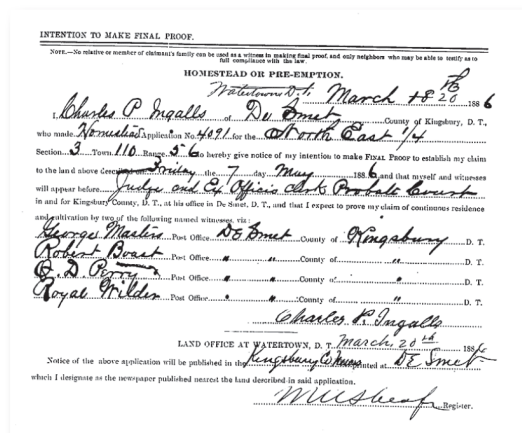 INTENTION TO MAKE FINAL PROOF.
NOTE.—No relative or member of claimant's family can be used as a witness in making final proof, and only neighbors who may be able to testify as to
full compliance with the law.
HOMESTEAD OR PRE-EMPTION.
Watertown D. T. March 18 20 th 1886
I, Charles P Ingalls of De Smet County of Kingsbury, D. T.,
who made Homestead Application No. 4091 for the North East 1/4
Section 3 Town 110 Range 56 do hereby give notice of my intention to make FINAL PROOF to establish my claim
to the land above described on Friday the 7 day May 1886 and that myself and witnesses
will appear before Judge and Ex Officio clerk Probate Court
in and for Kingsbury County, D. T., at his office in De Smet, D. T., and that I expect to prove my claim of continuous residence
and cultivation by two of the following named witnesses, viz:
George Masters Post Office De Smet County of Kingsbury D. T.
Robert Boast Post Office " " County of " D. T.
O. D. Perry Post Office " " County of " D. T.
Royal Wilder Post Office " " County of " D. T.
Charles P. Ingalls
LAND OFFICE AT WATERTOWN, D. T. March 20th 1886
Notice of the above application will be published in the Kingsbury Co News printed at De Smet
which I designate as the newspaper published nearest the land described in said application.
Register.